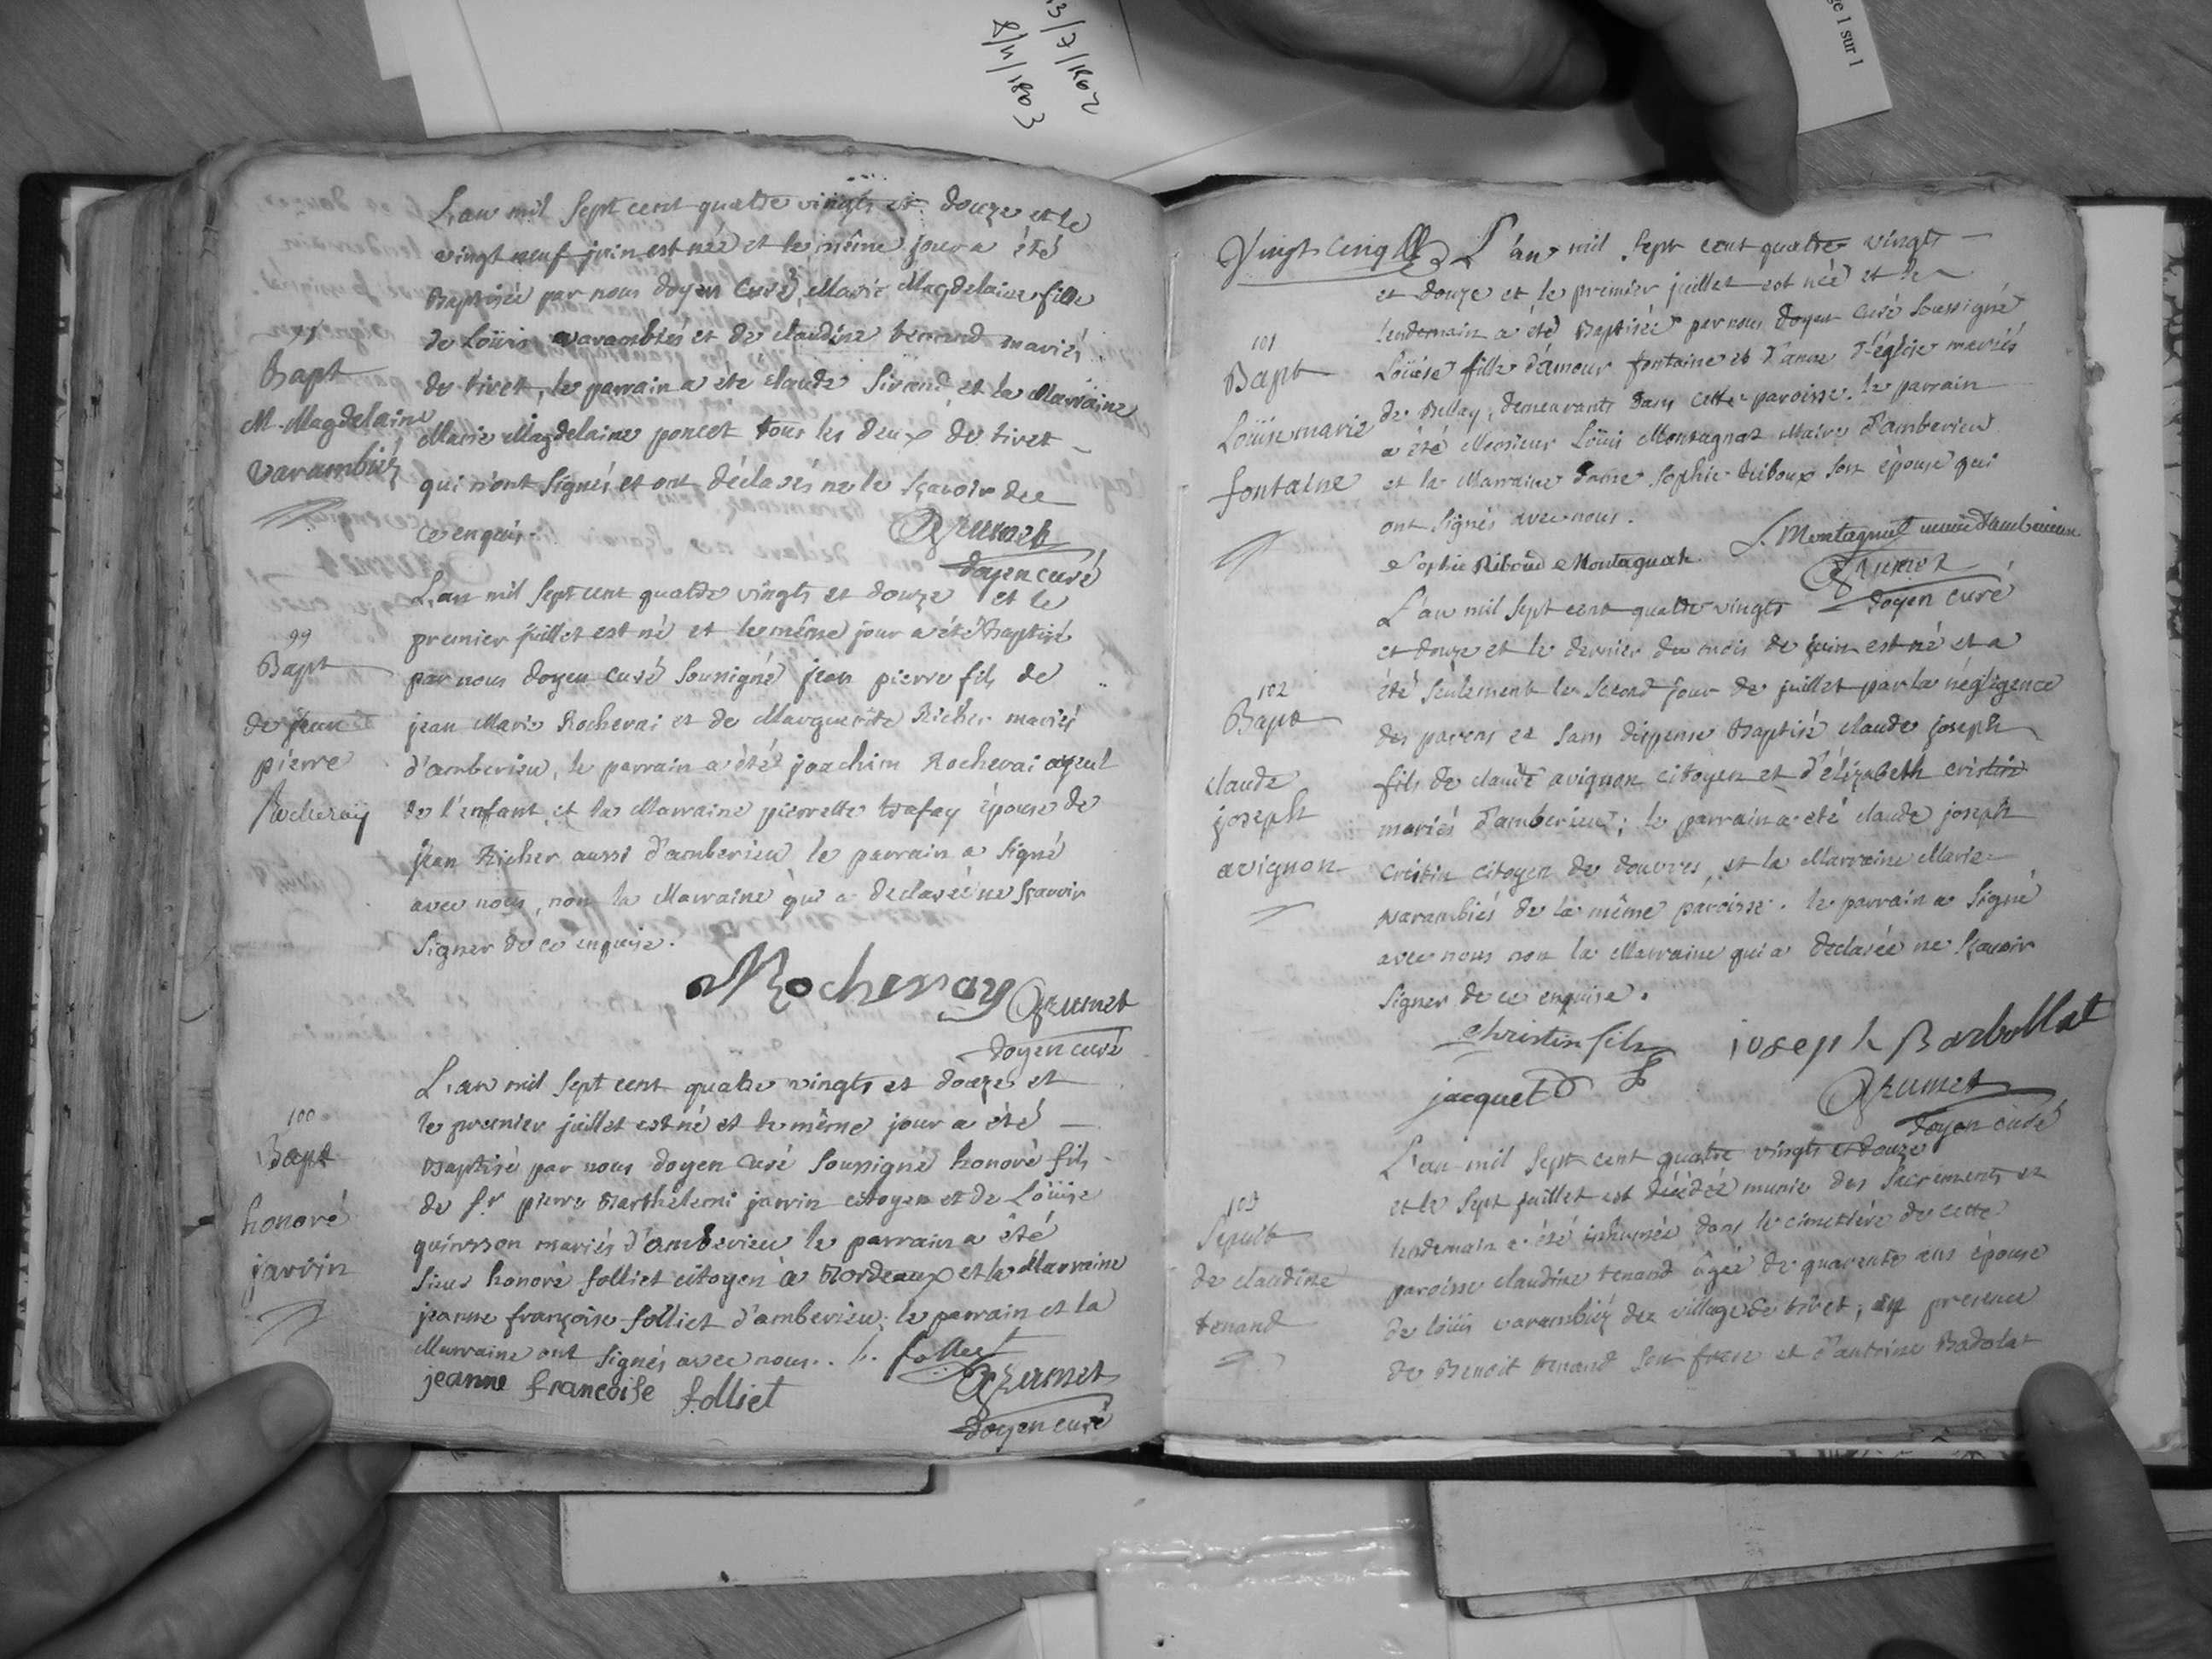 13/7/1802
8/4/1803
ge 1 sur 1
L'an mil sept cent quatre vingts et douze et le
vingt neuf juin est née et le même jour a été
Baptisée par nous doyen curé Marie Magdelaine fille
de Loüis varambiés et de claudine tenand mariés
de tiret, le parrain a été claude Sirand et la Marraine
Marie Magdelaine poncet tous les deux de tiret
qui n'ont signés et ont déclarés ne le sçavoir de
ce enquis.
Grumet
doyen curé
Bapt
M. Magdelaine
varambiéz
L'an mil sept cent quatre vingts et douze et le
premier juillet est né et le même jour a été Baptisé
par nous doyen curé soussigné jean pierre fils de
jean Marie Rocherai et de Marguerite Richer mariés
d'amberieu, le parrain a été joachim Rocherai ayeul
de l'enfant et la Marraine pierrette trafay épouse de
jean Richer aussi d'amberieu le parrain a signé
avec nous, non la Marraine qui a declarée ne sçavoir
signer de ce enquise.
Rocheray Grumet
doyen curé
99
Bapt
de jean
pierre
Rocheraÿ
L'an mil sept cent quatre vingts et douze et
le premier juillet est né et le même jour a été
Baptisé par nous doyen curé soussigné honoré fils
de sr. pierre Barthelemi jarrin citoyen et de Loüise
quinsson mariés d'amberieu le parrain a été
sieur honoré folliet citoyen a Bordeaux et la Marraine
jeanne françoise folliet d'amberieu; le parrain et la
Marraine ont signés avec nous. h. folliet
jeanne francoise folliet
Grumet
doyen curé
100
Bapt
honoré
jarrin
Vingt cinq L'an mil sept cent quatre vingts
et douze et le premier juillet est née et le
lendemain a été Baptisée par nous doyen curé soussigné
Loüise fille d'amour fontaine et d'anne l'église mariés
de Bellay, demeurants dans cette paroisse. le parrain
a été Monsieur Loüis Montagnat Maire d'amberieu
et la Marraine dame Sophie Riboux son épouse qui
ont signés avec nous.
Sophie Riboud Montagnat. L. Montagnat maire d'amberieu
Grumet
doyen curé
101
Bapt
Loüise marie
fontaine
L'an mil sept cent quatre vingts
et douze et le dernier du mois de juin est né et a
été seulement le second jour de juillet par la négligence
des parens et sans dispense Baptisé claude joseph
fils de claude avignon citoyen et d'élizabeth cristin
mariés d'amberieu; le parrain a été claude joseph
cristin citoyen de douvres, et la Marraine Marie
varambiés de la même paroisse. le parrain a signé
avec nous non la Marraine qui a declarée ne sçavoir
signer de ce enquise.
christin fils joseph Barbollat
jacquet Grumet
doyen curé
102
Bapt
claude
joseph
avignon
L'an mil sept cent quatre vingts et douze
et le sept juillet est décédée munie des sacréments et
lendemain a été inhumée dans le cimetière de cette
paroisse claudine tenand âgée de quarante ans épouse
de loüis varambiéz du village de tiret; en presence
de Benoit tenand son frere et d'antoine Badolat
103
Sepult
de claudine
tenand